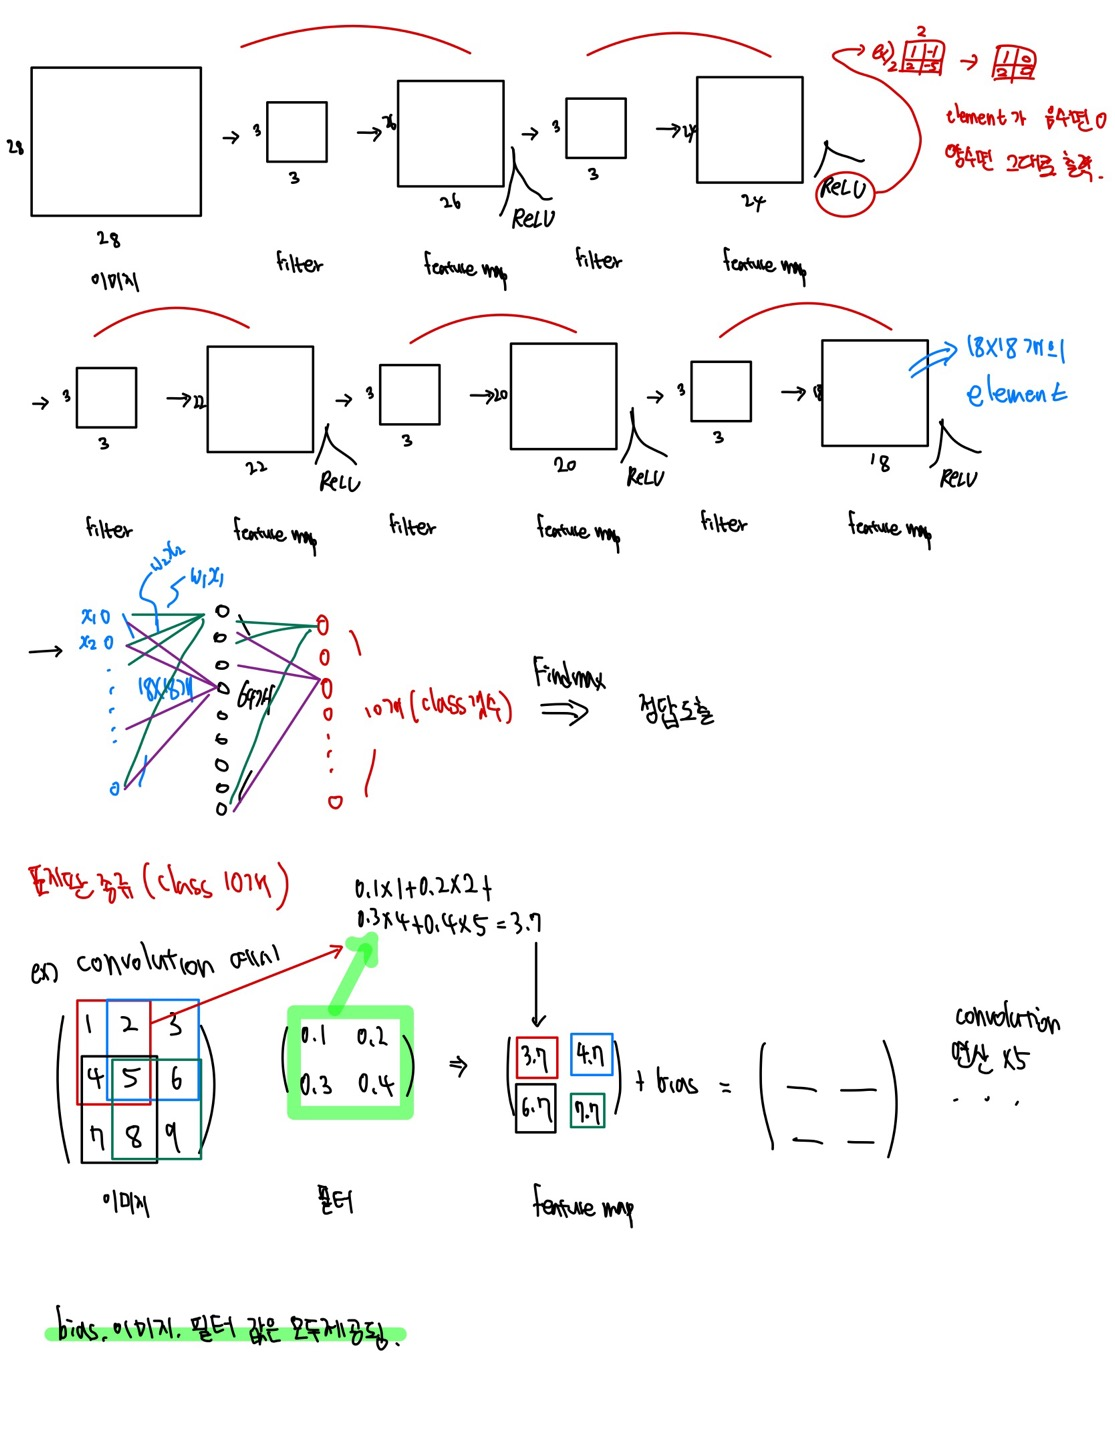 ex) 2 2 1 -1 2 -5 → 1 0 2 0
element가 음수면 0
양수면 그대로 출력.
28 → 3 → 26 → 3 → 24
28 3 26 ReLU 3 24 ReLU
이미지 filter feature map filter feature map
→ 3 → 22 → 3 → 20 → 3 → 18
18X18개의
element
3 22 ReLU 3 20 ReLU 3 18 ReLU
filter feature map filter feature map filter feature map
w₂x₂
w₁x₁
x₁ 0
x₂ 0
→ 18X18개 64개 10개 (class 갯수) Findmax ⇒ 정답 도출
표지판 종류 (class 10개)
0.1X1+0.2X2+
0.3X4+0.4X5=3.7
ex) convolution 예시
1 2 3
4 5 6
7 8 9
0.1 0.2
0.3 0.4
⇒
3.7 4.7
6.7 7.7
+ bias =
convolution
연산 X5
. . .
이미지 필터 feature map
bias, 이미지, 필터 값은 모두 제공됨.